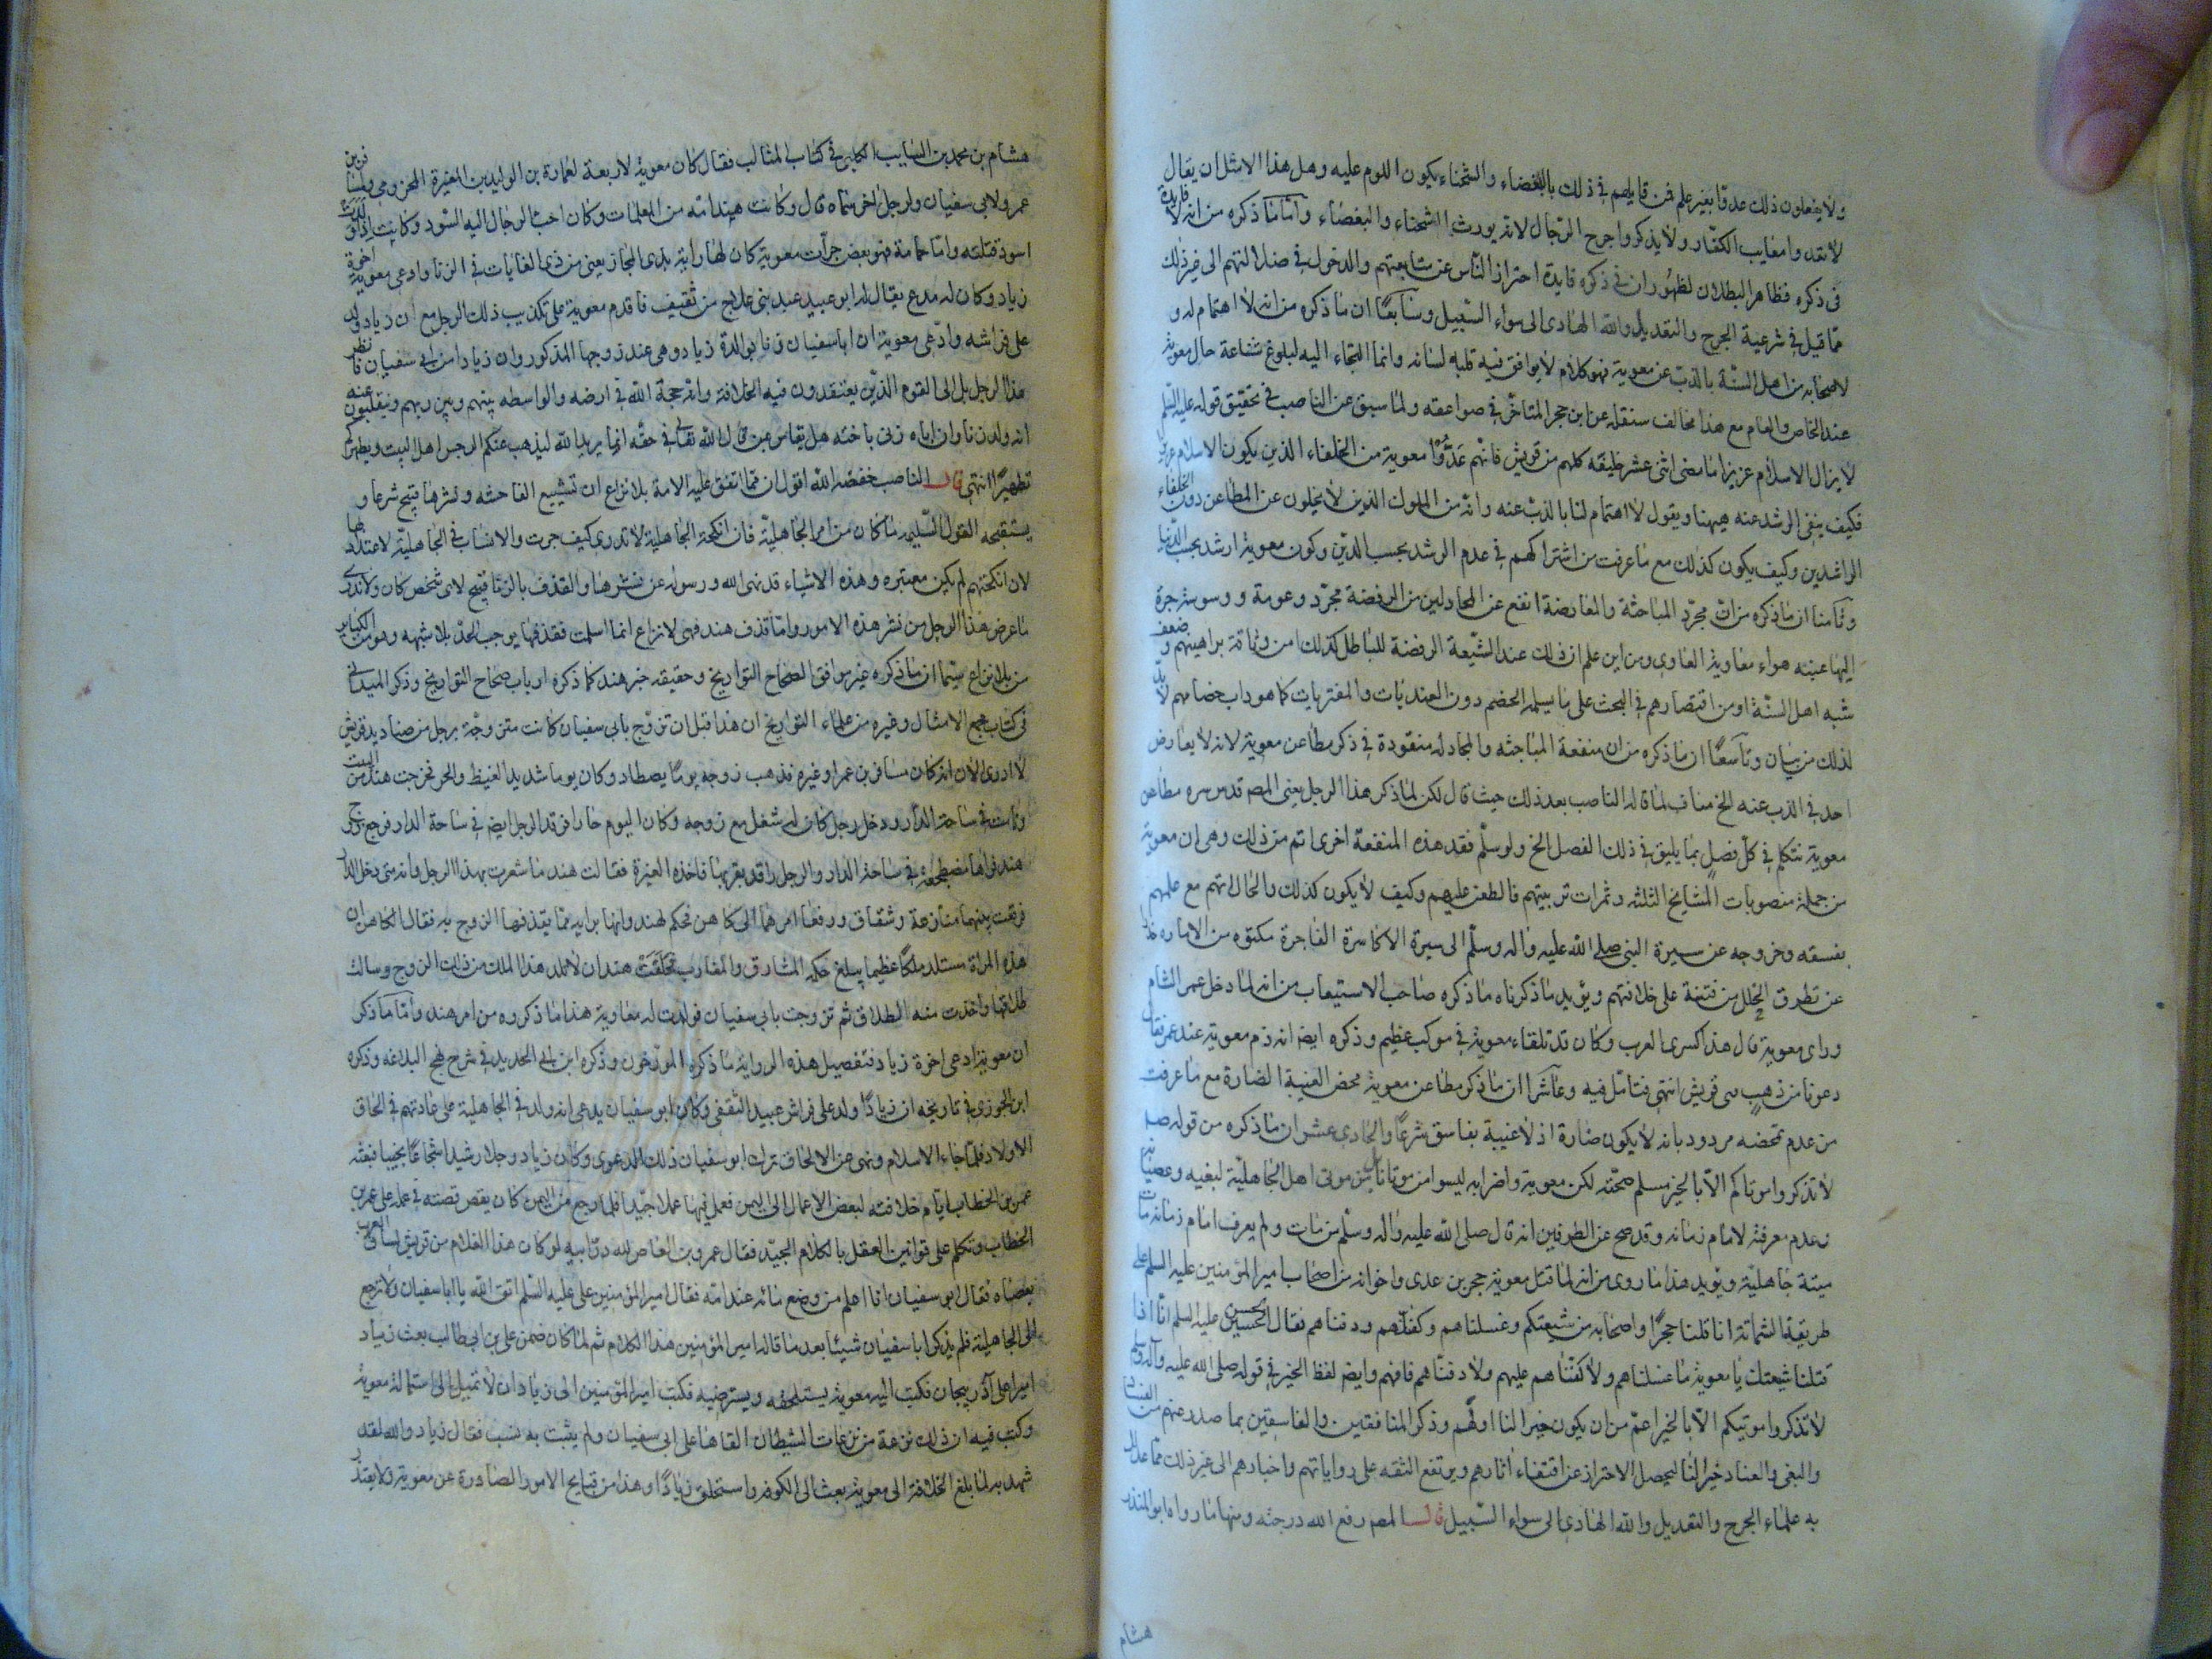 ولا يفعلون ذلك عدوا بغير علم فمن قابلهم في ذلك بالبغضاء والشحناء يكون اللوم عليه وهل هذا الا مثل ان يقال
لا تعد وا معايب الكفار ولا يذكروا جرح الرجال لانه يورث الشحناء والبغضاء واما ما ذكره من انه لا فايدة
في ذكره فظاهر البطلان لظهور ان في ذكره فايدة احتراز الناس عن متابعتهم والدخول في ضلالتهم الى غير ذلك
مما قيل في شرعية الجرح والتعديل والله الهادي الى سواء السبيل وسابعا ان ما ذكره من انه لا اهتمام له و
لاصحابه من اهل السنة بالذب عن معوية فهو كلام لا يوافق فيه قلبه لسانه وانما التجاء اليه لبلوغ شناعة حال معوية
عند الخاص والعام مع هذا مخالف سنقله عن ابن حجر المتاخر في صواعقه ولما سبق عن الناصب في تحقيق قوله عليه السلم
لا يزال الاسلام عزيزا ما مضى اثنى عشر خليفه كلهم من قريش فانهم عدوا معوية من الخلفاء الذين يكون الاسلام عزيزا بهم
فكيف ينفي الرشد عنه هيهنا ويقول لا اهتمام لنا بالذب عنه وانه من الملوك الذين لا يخلون عن المطاعن دون الخلفاء
الراشدين وكيف يكون كذلك مع ما عرفت من اشتراكهم في عدم الرشد بحسب الدين وكون معوية ارشد بحسب الدنيا
وثامنا ان ما ذكره من ان مجرد المباحثة والمعارضة انفع عن المجادلين من الرفضة مجرد وعومة ووسوسة جره
اليها عينه هواء معاوية الغاوي ومن اين علم ان ذلك عند الشيعة الرفضة للباطل كذلك امن وثاقة براهينهم وضعف
شبه اهل السنة او من اقتصارهم في البحث على ما يسلمه الخصم دون العنديات والمفتريات كما هو داب خصامهم لا بد
لذلك من بيان وتاسعا ان ما ذكره من ان منفعة المباحثه والمجادله مفقودة في ذكر مطاعن معوية لانه لا يعارض
احد في الذب عنه الخ مناف لما قاله الناصب بعد ذلك حيث قال لكن لما ذكر هذا الرجل يعني المصم قدس سره مطاعن
معوية نتكلم في كل فصل بما يليق في ذلك الفصل الخ ولو سلم فقد هذه المنفعة اخرى اتم من ذلك وهى ان معوية
من جملة منصوبات المشايخ الثلثه وثمرات تربيتهم فالطعن عليه طعن عليهم وكيف لا يكون كذلك والحال انهم مع علمهم
بفسقه وخروجه عن سيرة النبي صلى الله عليه واله وسلم الى سيرة الاكاسرة الفاجرة مكنوه من الاماره
عن تطرق الخلل من فتنة على خلافتهم ويؤيد ما ذكرناه ما ذكره صاحب الاستيعاب من انه لما دخل عمر الشام
وراى معوية قال هذا كسرى العرب وكان قد تلقاه معوية في موكب عظيم وذكره ايضا انه ذم معوية عند عمر فقال
دعونا من ذم فتى قريش انتهى فتامل فيه وعاشرا ان ما ذكر مطاعن معوية محض الغيبة الضارة مع ما عرفت
من عدم تمحضه مردود بانه لا يكون ضارة اذ لا غيبة بفاسق شرعا والحادي عشر ان ما ذكره من قوله صم
لا تذكروا موتاكم الا بالخير مسلم صحته لكن معوية واضرابه ليسوا من موتانا بل من موتى اهل الجاهلية لبغيه وعصيانهم
وعدم معرفته لامام زمانه وقد صح عن الطرفين انه قال صلى الله عليه واله وسلم من مات ولم يعرف امام زمانه مات
ميتة جاهلية ويؤيد هذا ما روى من انه لما قتل معوية حجر بن عدى واخوانه من اصحاب امير المؤمنين عليه السلم على
طريقة الشماتة انا قلنا حجرا واصحابه من شيعتكم وغسلناهم وكفناهم ودفناهم فقال الحسين عليه السلم انا اذا
قتلنا شيعتك يا معوية ما غسلناهم ولا كفناهم ولا دفناهم فافهم وايضا لفظ الخير في قوله صلى الله عليه وآله وسلم
لا تذكروا موتيكم الا بالخير اعم من ان يكون خيرا لنا او لهم وذكر المنافقين والفاسقين بما صدر عنهم من الفساد
والبغي والعناد خير لنا ليحصل الاحتراز عن اقتفاء اثارهم ويرتفع الثقه على رواياتهم واخبارهم الى غير ذلك مما علل
به علماء الجرح والتعديل والله الهادي الى سواء السبيل قال المصم رفع الله درجته ومنها ما رواه ابو المنذر
هشام
هشام بن محمد بن السايب الكلبي في كتاب المثالب فقال كان معوية لاربعة لعمارة بن الوليد بن المغيرة المخزومي ولمسافر بن
عمر ولابى سفيان ولرجل اخر سماه قال وكانت هند امه من المغلمات وكان احب الرجال اليه السود وكانت اذا ولدت
اسود قتلته واما حمامة فهو بعض جدات معوية كان لها راية بذى المجاز يعني من ذوى الغايات في الزنا وادعى معوية اخوة
زياد وكان له مدع يقال له ابو عبيد عبد بني علاج من ثقيف فاقدم معوية على تكذيب ذلك الرجل مع ان زيادا ولد
على فراشه وادعى معوية ان ابا سفيان زنا بوالدة زياد وهى عند زوجها المذكور وان زيادا من ابى سفيان فانظر
هذا الرجل بل الى القوم الذين يعتقدون فيه الخلافة وانه حجة الله في ارضه والواسطه بينهم وبين ربهم وينقلبون عنه
انه ولد زنا وان اباه زنى باخته هل يقاس بمن قال الله تعالى في حقه انما يريد الله ليذهب عنكم الرجس اهل البيت ويطهركم
تطهيرا انتهى قال الناصب خفضه الله اقول ان مما اتفق عليه الامة بلا نزاع ان تشييع الفاحشه ونشرها قبيح شرعا و
يستقبحه العقول السليمه ما كان من امر الجاهلية فان انكحة الجاهلية لا تدرى كيف جرت والانساب في الجاهلية لا اعتداد بها
لان انكحتهم لم يكن معتبره وهذه الاشياء قد نهى الله ورسوله عن نشرها والقذف بالزنا قبيح لاى شخص كان ولا ندرى
ما عرض هذا الرجل من نشر هذه الامور واما قذف هند فهى لا نزاع انما اسلمت فقذفها يوجب الحد بلا شبهه وهو من الكباير
من بلا نزاع سيما ان ما ذكره غير موافق لصحاح التواريخ وحقيقه خبر هند كما ذكره ارباب صحاح التواريخ وذكر الميداني
في كتاب مجمع الامثال وغيره من علماء التواريخ ان هندا قبل ان تزوج بابى سفيان كانت متزوجة برجل من صناديد قريش
لا ادرى الان انه كان مسافر بن عمرا وغيره فذهب زوجه يوما يصطاد وكان يوما شديد الغيظ والحر فخرجت هند من البيت
ونامت في ساحة الدار ودخل رجل كان له شغل مع زوجه وكان اليوم حارا فرقد الرجل ايضا في ساحة الدار فرجع زوج
هند فراها مضطجعة في ساحة الدار والرجل راقد بقربها فاخذه الغيرة فقالت هند ما شعرت بهذا الرجل وانه متى دخل الدار
فرفعت بينهما منازعة وشقاق ورفعا امرهما الى كاهن فحكم لهند وانها بريه مما يقذفها الزوج به فقال الكاهن ان
هذه المراة ستلد ملكا عظيما يبلغ حكمه المشارق والمغارب فحلفت هند ان لا تلد هذا الملك من ذلك الزوج وسالت
طلاقها واخذت منه الطلاق ثم تزوجت بابى سفيان فولدت له معاوية هذا ما ذكروه من امر هند واما ما ذكر
ان معوية ادعى اخوة زياد فتفصيل هذه الرواية ما ذكره المورخون وذكره ابن ابى الحديد في شرح نهج البلاغه وذكره
ابن الجوزى في تاريخه ان زيادا ولد على فراش عبيد الثقفى وكان ابو سفيان يدعى انه ولد في الجاهلية على عادتهم في الحاق
الاولاد فلما جاء الاسلام ونهى عن الالحاق ترك ابو سفيان ذلك الدعوى وكان زياد رجلا رشيدا شجاعا نجيبا فبعثه
عمر بن الخطاب ايام خلافته لبعض الاعمال الى اليمن فعمل فيها عملا جيدا فلما رجع من اليمن كان يقص قصته في عمله على عمر بن
الخطاب وتكلم على قوانين العقل بالكلام الجيد فقال عمرو بن العاص لله در ابيه لو كان هذا الغلام من قريش لساق العرب
بعصاه فقال ابى سفيان انا اعلم من وضع مائه عند امه فقال امير المؤمنين على عليه السلم اتق الله يا ابا سفيان ولا ترجع
الى الجاهلية فلم يذكر ابا سفيان شيئا بعد ما قاله امير المؤمنين هذا الكلام ثم لما كان ضمن على بن ابى طالب بعث زياد
اميرا على آذربيجان فكتب اليه معوية يستلحقه ويسترضيه فكتب امير المؤمنين الى زياد ان لا تميل الى استمالة معوية
وكتب فيه ان ذلك نزعة من نزعات الشيطان القاها على ابى سفيان ولم يثبت به نسب فقال زياد والله لقد
شهد به لما بلغ الخلافة الى معوية بعث الى الكوفه واستحلق زيادا وهذا من قبايح الامور الصادرة عن معوية ولا يعتذر